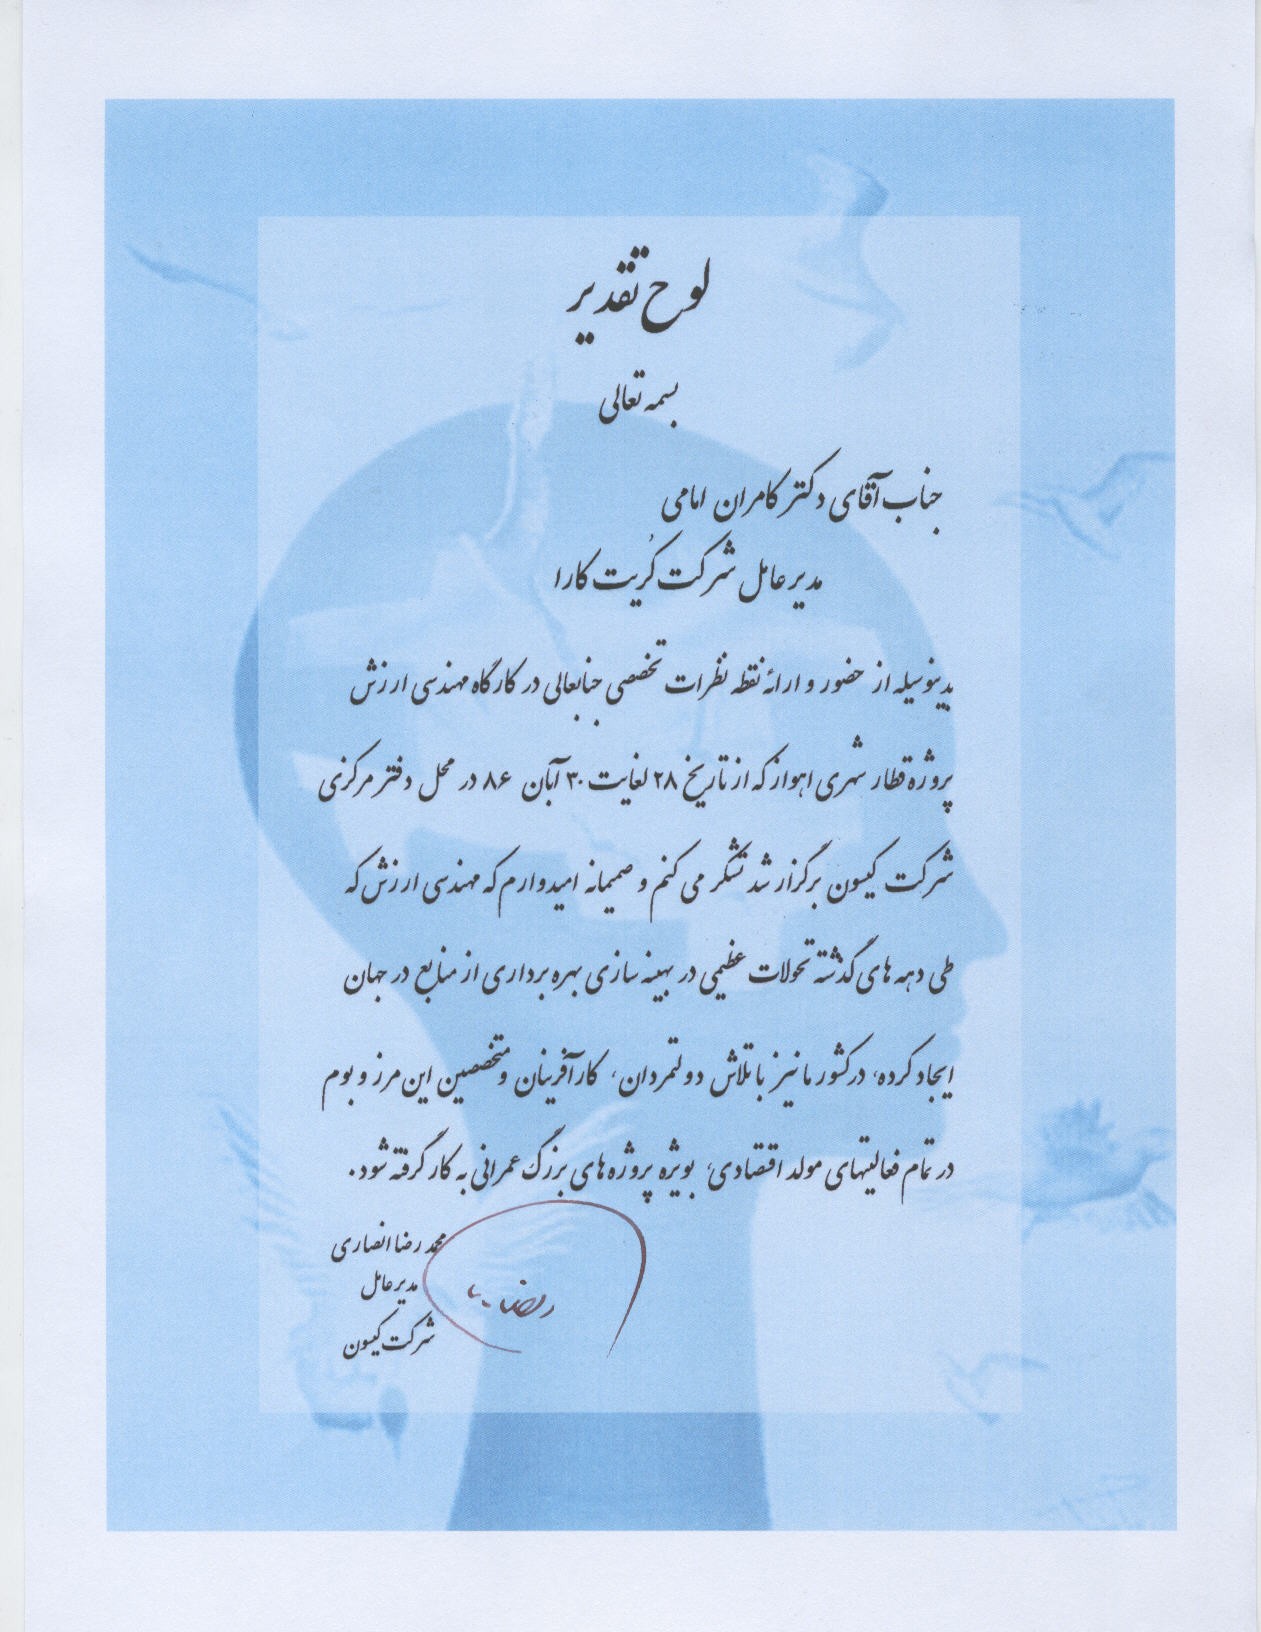 لوح تقدیر
بسمه تعالی
جناب آقای دکتر کامران امامی
مدیر عامل شرکت کُریت کارا
بدینوسیله از حضور و ارائه نقطه نظرات تخصصی جنابعالی در کارگاه مهندسی ارزش
پروژه قطار شهری اهواز که از تاریخ ۲۸ لغایت ۳۰ آبان ۸۶ در محل دفتر مرکزی
شرکت کیسون برگزار شد تشکر می کنم و صمیمانه امیدوارم که مهندسی ارزش که
طی دهه های گذشته تحولات عظیمی در بهینه سازی بهره برداری از منابع در جهان
ایجاد کرده، در کشور ما نیز با تلاش دولتمردان، کارآفرینان و متخصصین این مرز و بوم
در تمام فعالیتهای مولد اقتصادی، بویژه پروژه های بزرگ عمرانی به کار گرفته شود.
محمد رضا انصاری
مدیر عامل
شرکت کیسون